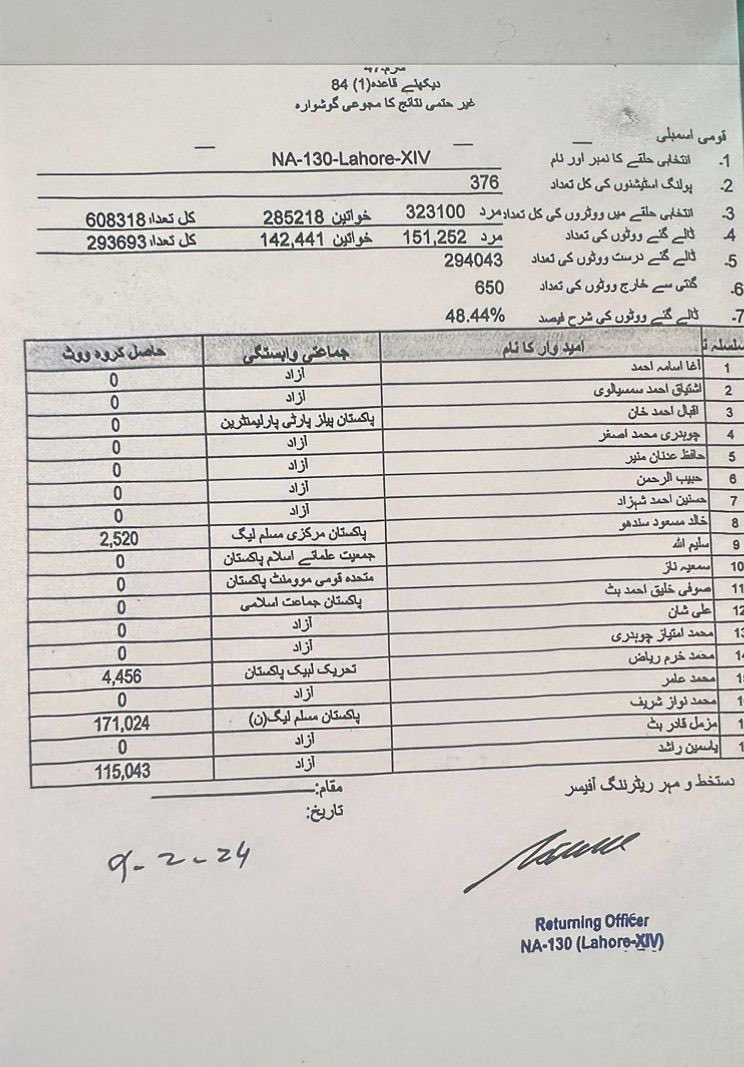 دیکھئے قاعدہ(1) 84
غیر حتمی نتائج کا مجموعی گوشوارہ
قومی اسمبلی
1- انتخابی حلقے کا نمبر اور نام NA-130-Lahore-XIV
2- پولنگ اسٹیشنوں کی کل تعداد 376
3- انتخابی حلقے میں ووٹروں کی کل تعداد مرد 323100 خواتین 285218 کل تعداد 608318
4- ڈالے گئے ووٹوں کی تعداد مرد 151,252 خواتین 142,441 کل تعداد 293693
5- ڈالے گئے درست ووٹوں کی تعداد 294043
6- گنتی سے خارج ووٹوں کی تعداد 650
7- ڈالے گئے ووٹوں کی شرح فیصد 48.44%
سلسلہ امید وار کا نام جماعتی وابستگی حاصل کردہ ووٹ
1 آغا اسامہ احمد آزاد 0
2 اشتیاق احمد سمسیالوی آزاد 0
3 اقبال احمد خان پاکستان پیپلز پارٹی پارلیمنٹرین 0
4 چوہدری محمد اصغر آزاد 0
5 حافظ عدنان منیر آزاد 0
6 حبیب الرحمن آزاد 0
7 حسنین احمد شہزاد آزاد 0
8 خالد مسعود سندھو پاکستان مرکزی مسلم لیگ 2,520
9 سلیم اللہ جمعیت علمائے اسلام پاکستان 0
10 سمعیہ ناز متحدہ قومی موومنٹ پاکستان 0
11 صوفی خلیق احمد بٹ پاکستان جماعت اسلامی 0
12 علی شان آزاد 0
محمد امتیاز چوہدری آزاد 0
محمد خرم ریاض تحریک لبیک پاکستان 4,456
محمد عامر آزاد 0
محمد نواز شریف پاکستان مسلم لیگ(ن) 171,024
مزمل قادر بٹ آزاد 0
یاسمین راشد آزاد 115,043
دستخط و مہر ریٹرننگ آفیسر
مقام:
تاریخ:
9-2-24
Returning Officer
NA-130 (Lahore-XIV)